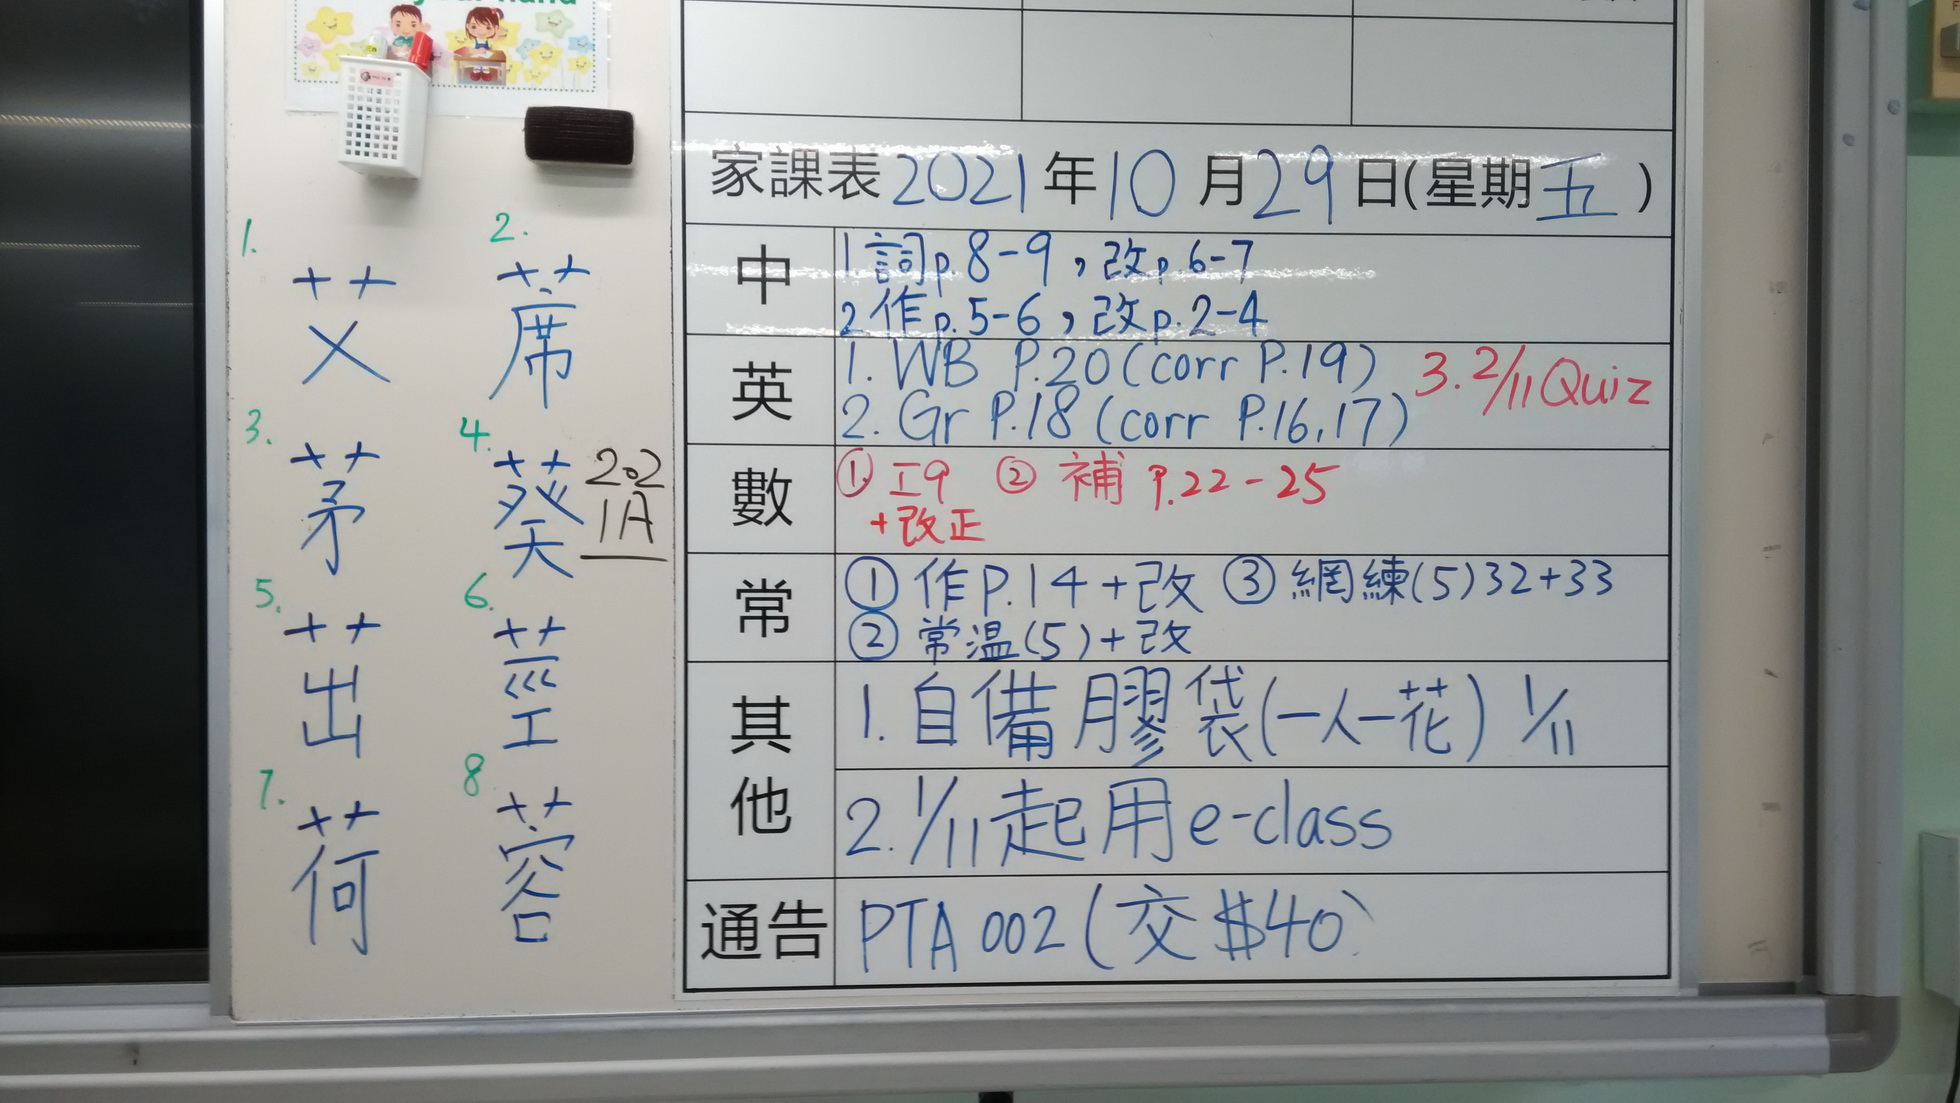 1.
艾
2.
蓆
3.
茅
4.
葵
202
1A
5.
茁
6.
莖
7.
荷
8.
蓉
家課表2021年10月29日(星期五)
中
1 詞p.8-9，改p.6-7
2 作p.5-6，改p.2-4
英
1. WB P.20(corr P.19) 3. 2/11 Quiz
2. Gr P.18 (corr P.16,17)
數
① 工9 ② 補 P.22-25
+改正
常
① 作P.14+改 ③ 網練(5)32+33
② 常温(5)+改
其他
1. 自備膠袋(一人一花) 1/11
2. 1/11起用e-class
通告
PTA 002 (交$40)